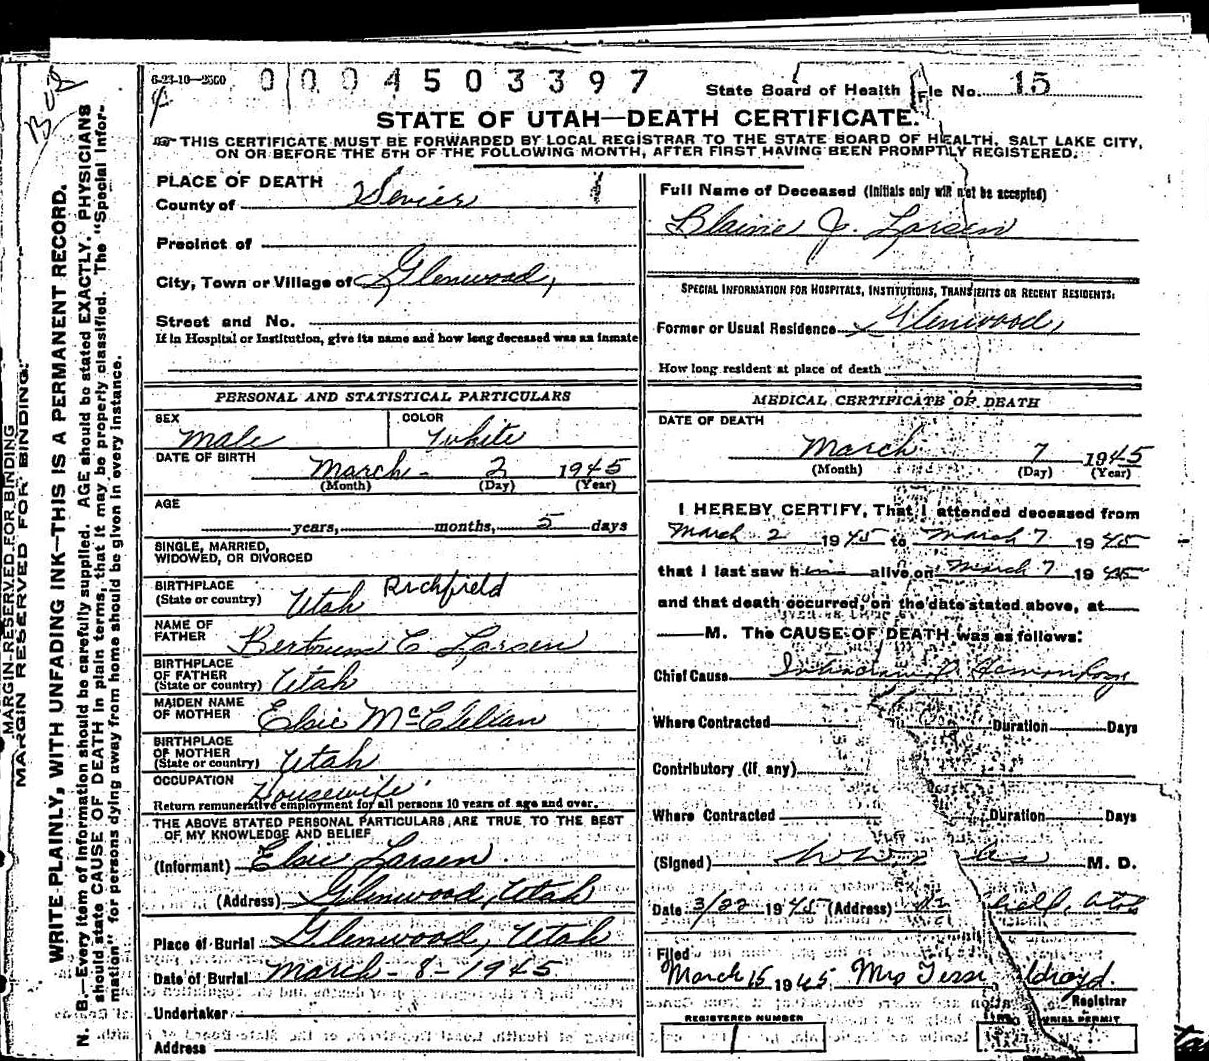 Bud
6-23-10—2500
0004503397
State Board of Health File No. 15
STATE OF UTAH—DEATH CERTIFICATE.
THIS CERTIFICATE MUST BE FORWARDED BY LOCAL REGISTRAR TO THE STATE BOARD OF HEALTH, SALT LAKE CITY,
ON OR BEFORE THE 5TH OF THE FOLLOWING MONTH, AFTER FIRST HAVING BEEN PROMPTLY REGISTERED.
MARGIN RESERVED FOR BINDING
MARGIN RESERVED FOR BINDING.
WRITE PLAINLY, WITH UNFADING INK—THIS IS A PERMANENT RECORD.
N. B.—Every item of information should be carefully supplied. AGE should be stated EXACTLY. PHYSICIANS
should state CAUSE OF DEATH in plain terms, that it may be properly classified. The "Special Infor-
mation" for persons dying away from home should be given in every instance.
PLACE OF DEATH
County of Sevier 1
Precinct of
City, Town or Village of Glenwood,
Street and No.
If in Hospital or Institution, give its name and how long deceased was an inmate
PERSONAL AND STATISTICAL PARTICULARS
SEX
Male
COLOR
White
DATE OF BIRTH
March - 2 1945
(Month) (Day) (Year)
AGE
years, months, 5 days
SINGLE, MARRIED,
WIDOWED, OR DIVORCED
BIRTHPLACE
(State or country) Utah Richfield
NAME OF
FATHER Bertrum C Larsen
BIRTHPLACE
OF FATHER
(State or country) Utah
MAIDEN NAME
OF MOTHER Elsie McClelian
BIRTHPLACE
OF MOTHER
(State or country) Utah
OCCUPATION
Housewife
Return remunerative employment for all persons 10 years of age and over.
THE ABOVE STATED PERSONAL PARTICULARS ARE TRUE TO THE BEST
OF MY KNOWLEDGE AND BELIEF
(Informant) Elsie Larsen
(Address) Glenwood, Utah
Place of Burial Glenwood, Utah
Date of Burial March - 8 - 1945
Undertaker
Address
Full Name of Deceased (Initials only will not be accepted)
Blaine J. Larsen
SPECIAL INFORMATION FOR HOSPITALS, INSTITUTIONS, TRANSIENTS OR RECENT RESIDENTS:
Former or Usual Residence Glenwood,
How long resident at place of death
MEDICAL CERTIFICATE OF DEATH
DATE OF DEATH
March 7 1945
(Month) (Day) (Year)
I HEREBY CERTIFY, That I attended deceased from
March 2 1945 to March 7 1945
that I last saw him alive on March 7 1945
and that death occurred, on the date stated above, at
M. The CAUSE OF DEATH was as follows:
Chief Cause
Where Contracted Duration Days
Contributory (if any)
Where Contracted Duration Days
(Signed) M. D.
Date 3/22 1945 (Address)
Filed
March 15 1945 Mrs
Registrar
REGISTERED NUMBER
1
BURIAL PERMIT